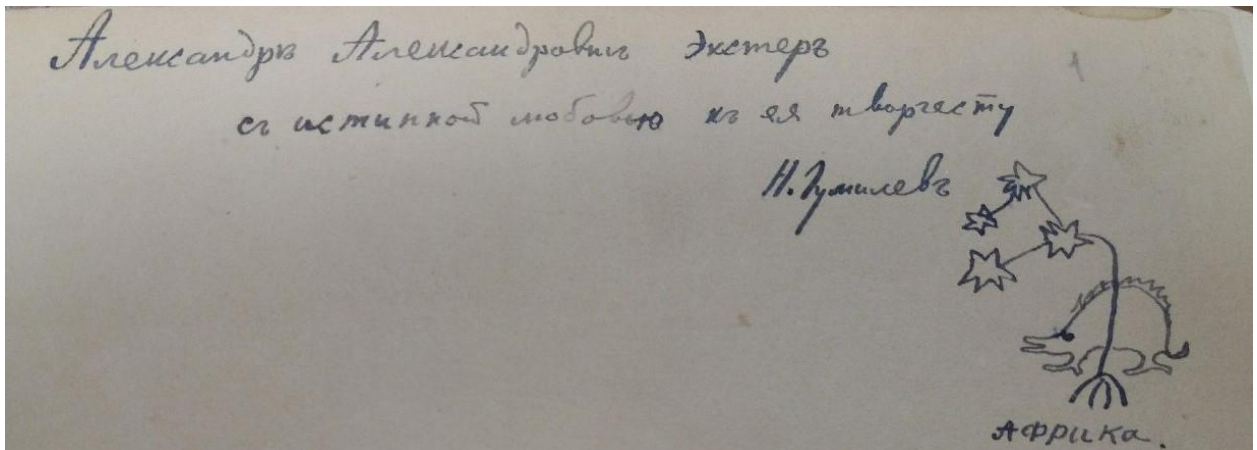 Александръ Александровнъ Экстеръ
съ истинной любовью къ ея творчесту
Н. Гумилевъ
Африка.